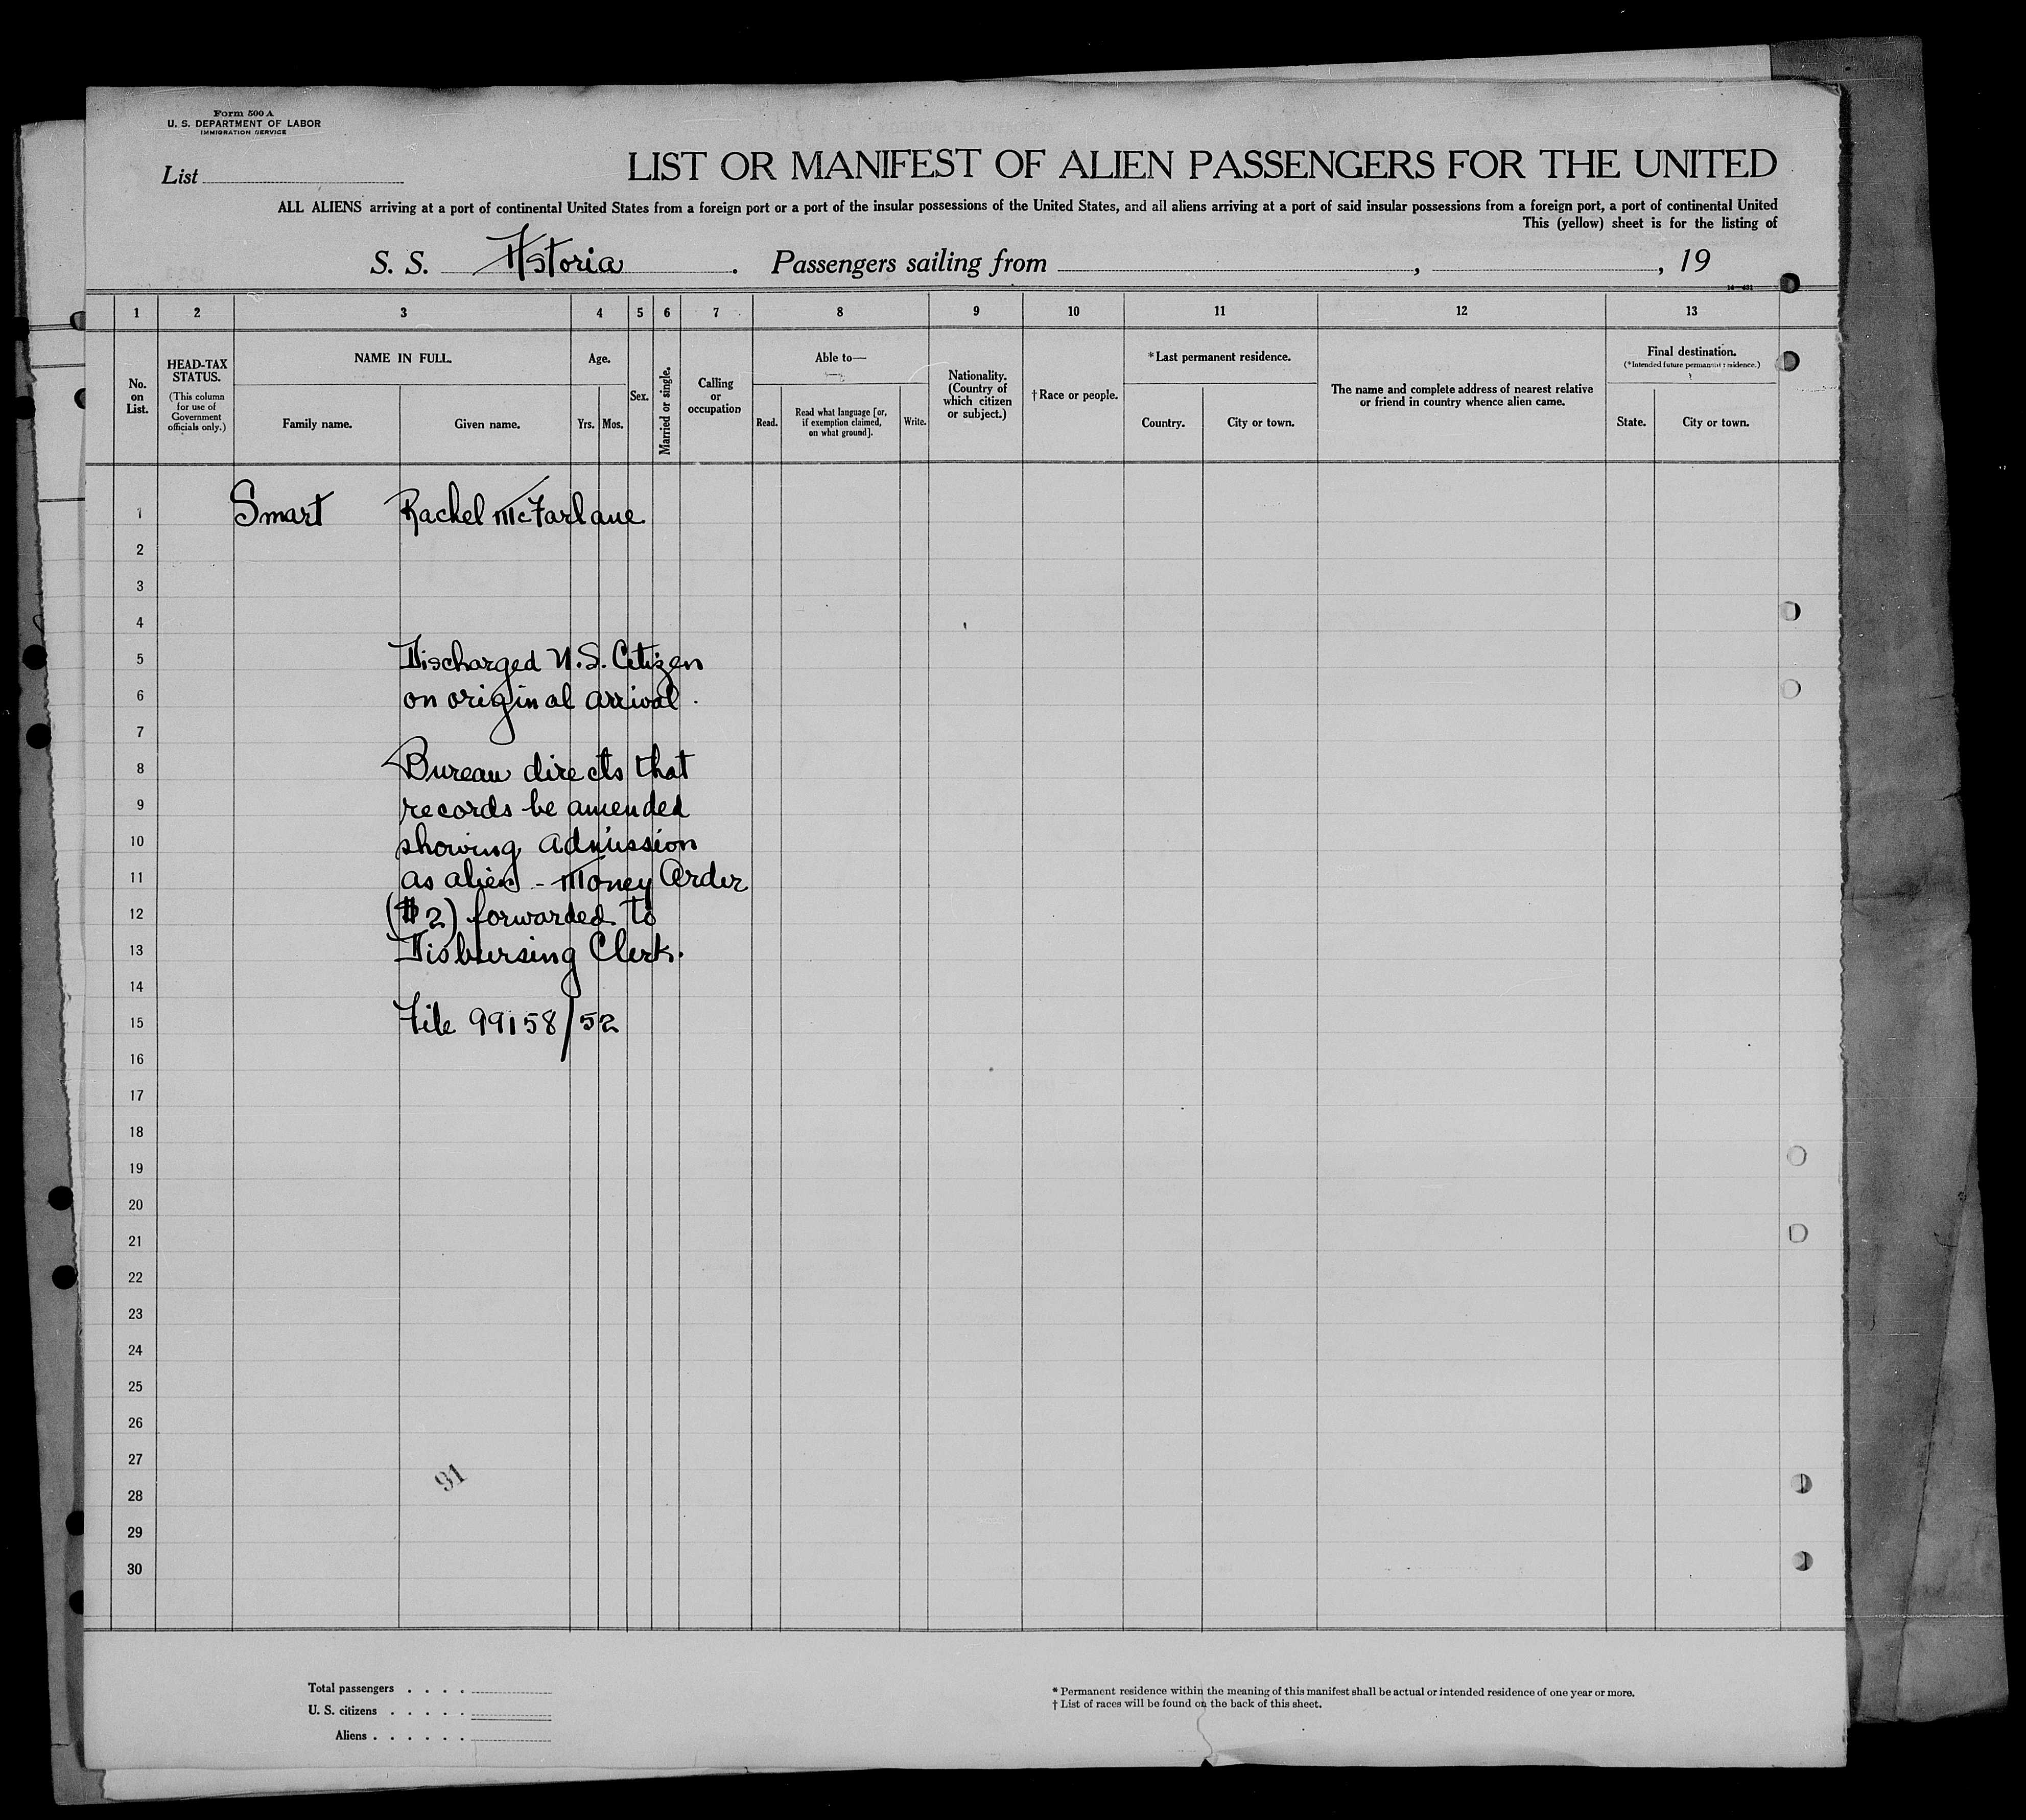 Form 500 A
U. S. DEPARTMENT OF LABOR
IMMIGRATION SERVICE
List
LIST OR MANIFEST OF ALIEN PASSENGERS FOR THE UNITED
ALL ALIENS arriving at a port of continental United States from a foreign port or a port of the insular possessions of the United States, and all aliens arriving at a port of said insular possessions from a foreign port, a port of continental United
This (yellow) sheet is for the listing of
S. S. Astoria. Passengers sailing from , , 19
1 2 3 4 5 6 7 8 9 10 11 12 13
No. on List.
HEAD-TAX STATUS.
(This column for use of Government officials only.)
NAME IN FULL.
Family name. Given name.
Age.
Yrs. Mos.
Sex.
Married or single.
Calling or occupation
Able to—
Read. Read what language [or, if exemption claimed, on what ground]. Write.
Nationality. (Country of which citizen or subject.)
†Race or people.
*Last permanent residence.
Country. City or town.
The name and complete address of nearest relative or friend in country whence alien came.
Final destination.
(*Intended future permanent residence.)
State. City or town.
1 Smart Rachel McFarlane
2
3
4
5 Discharged U.S. Citizen
6 on original arrival.
7
8 Bureau directs that
9 records be amended
10 showing admission
11 as alien - Money Order
12 ($2) forwarded to
13 Disbursing Clerk.
14
15 File 99158/52
16
17
18
19
20
21
22
23
24
25
26
27
91
28
29
30
Total passengers . . . .
U. S. citizens . . . . .
Aliens . . . . . .
* Permanent residence within the meaning of this manifest shall be actual or intended residence of one year or more.
† List of races will be found on the back of this sheet.